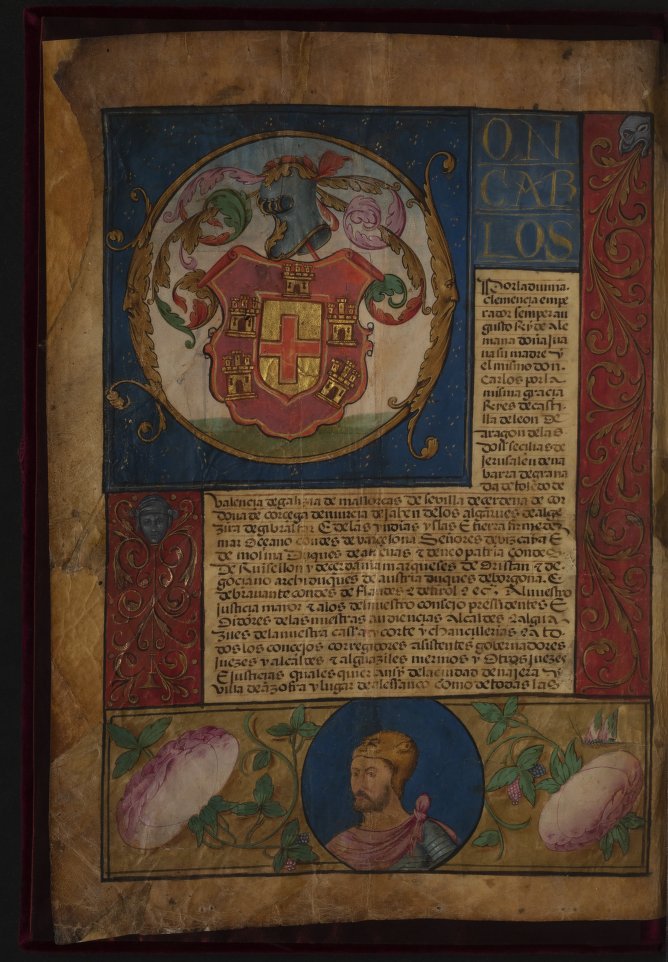 ON
CAR
LOS
Por la divina
clemencia empe
rador semper au
gusto Rey de Ale
mana doña Jua
na su madre y
el mismo don
carlos por la
misma gracia
Reyes de casti
lla de leon De
aragon de las
dos secilias de
Jerusalen de na
barra de grana
da de toledo de
valencia de galizia de mallorcas de sevilla de cerdena de cor
dova de corcega de murcia de jaben de los algarves de alge
zira de gibraltar E de las yndias yslas E tierra firme del
mar Oceano condes de varcelona Señores de vizcaya E
de molina Duques de atenas E de neopatria Condes
De Ruisellon y de cerdania marqueses de Oristan E de
gociano archiduques de austria duques de borgona E
de bravante condes de flandes E de tirol E ec. Al nuestro
justicia maior E a los del nuestro consejo pressidentes E
Oidores de las nuestras audiencias Alcaldes E algua
ziles de la nuestra cassa y corte y chancillerias E a to
dos los concejos corregidores asistentes gobernadores
juezes y alcaldes E alguaziles merinos y Otros juezes
E justicias quales quier ansy de la ciudad de najera y
villa de azofra y lugar de alessanco como de todas las